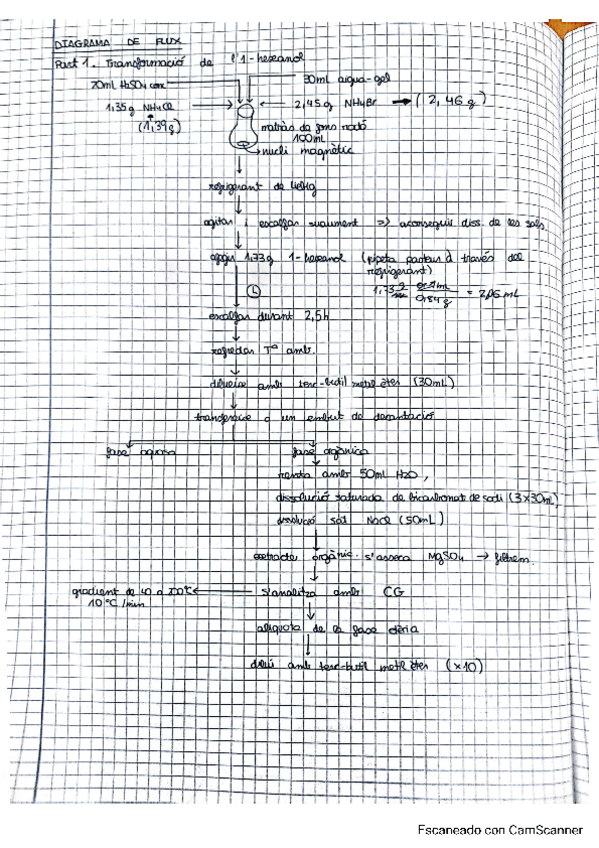 DIAGRAMA DE FLUX
Part 1. Transformació de l'1-hexanol
20mL H2SO4 conc 30mL aigua-gel
1,35g NH4Cl 2,45g NH4Br → (2,46g)
(1,39g) matràs de fons rodó
100mL
nucli magnètic
refrigerant de Liebig
agitar i escalfar suaument => aconseguir diss. de les sals
afegir 1,73g 1-hexanol (pipeta pasteur a través del
refrigerant)
= 2,06 mL
0,84g
escalfar durant 2,5h
refredar Tª amb.
diluir amb terc-butil metil èter (30mL)
transferir a un embut de decantació
fase aquosa fase orgànica
renta amb 50ml H2O,
dissolució saturada de bicarbonat de sodi (3x30mL)
dissolució sat NaCl (50mL)
extracte orgànic s'asseca MgSO4 → filtrem.
gradient de 40 a 200ºC s'analitza amb CG
10ºC/min
alíquota de la fase etèria
dilui amb terc-butil metil èter (x10)
Escaneado con CamScanner